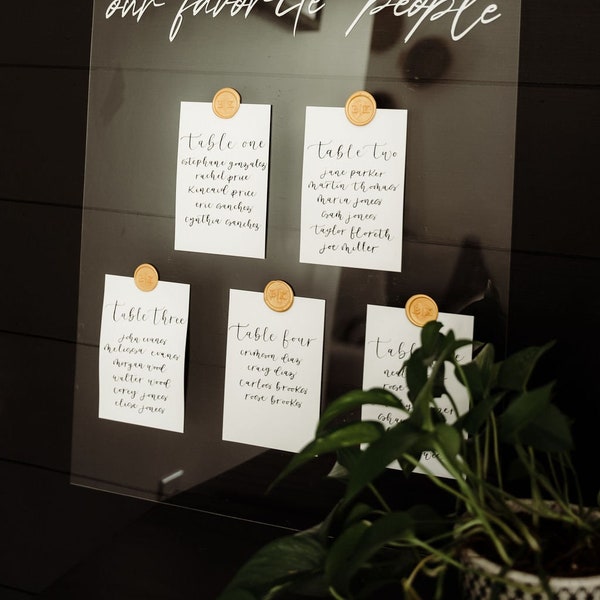 our favorite people
table one
stephane gonzalez
rachel price
kincaid price
eric sanchez
cynthia sanchez
table two
jane parker
martin thomas
maria jones
sam jones
taylor floreth
joe miller
table three
john evans
melissa evans
morgan wood
walter wood
corey jones
elise jones
table four
crimson diaz
craig diaz
carlos brookes
rose brookes